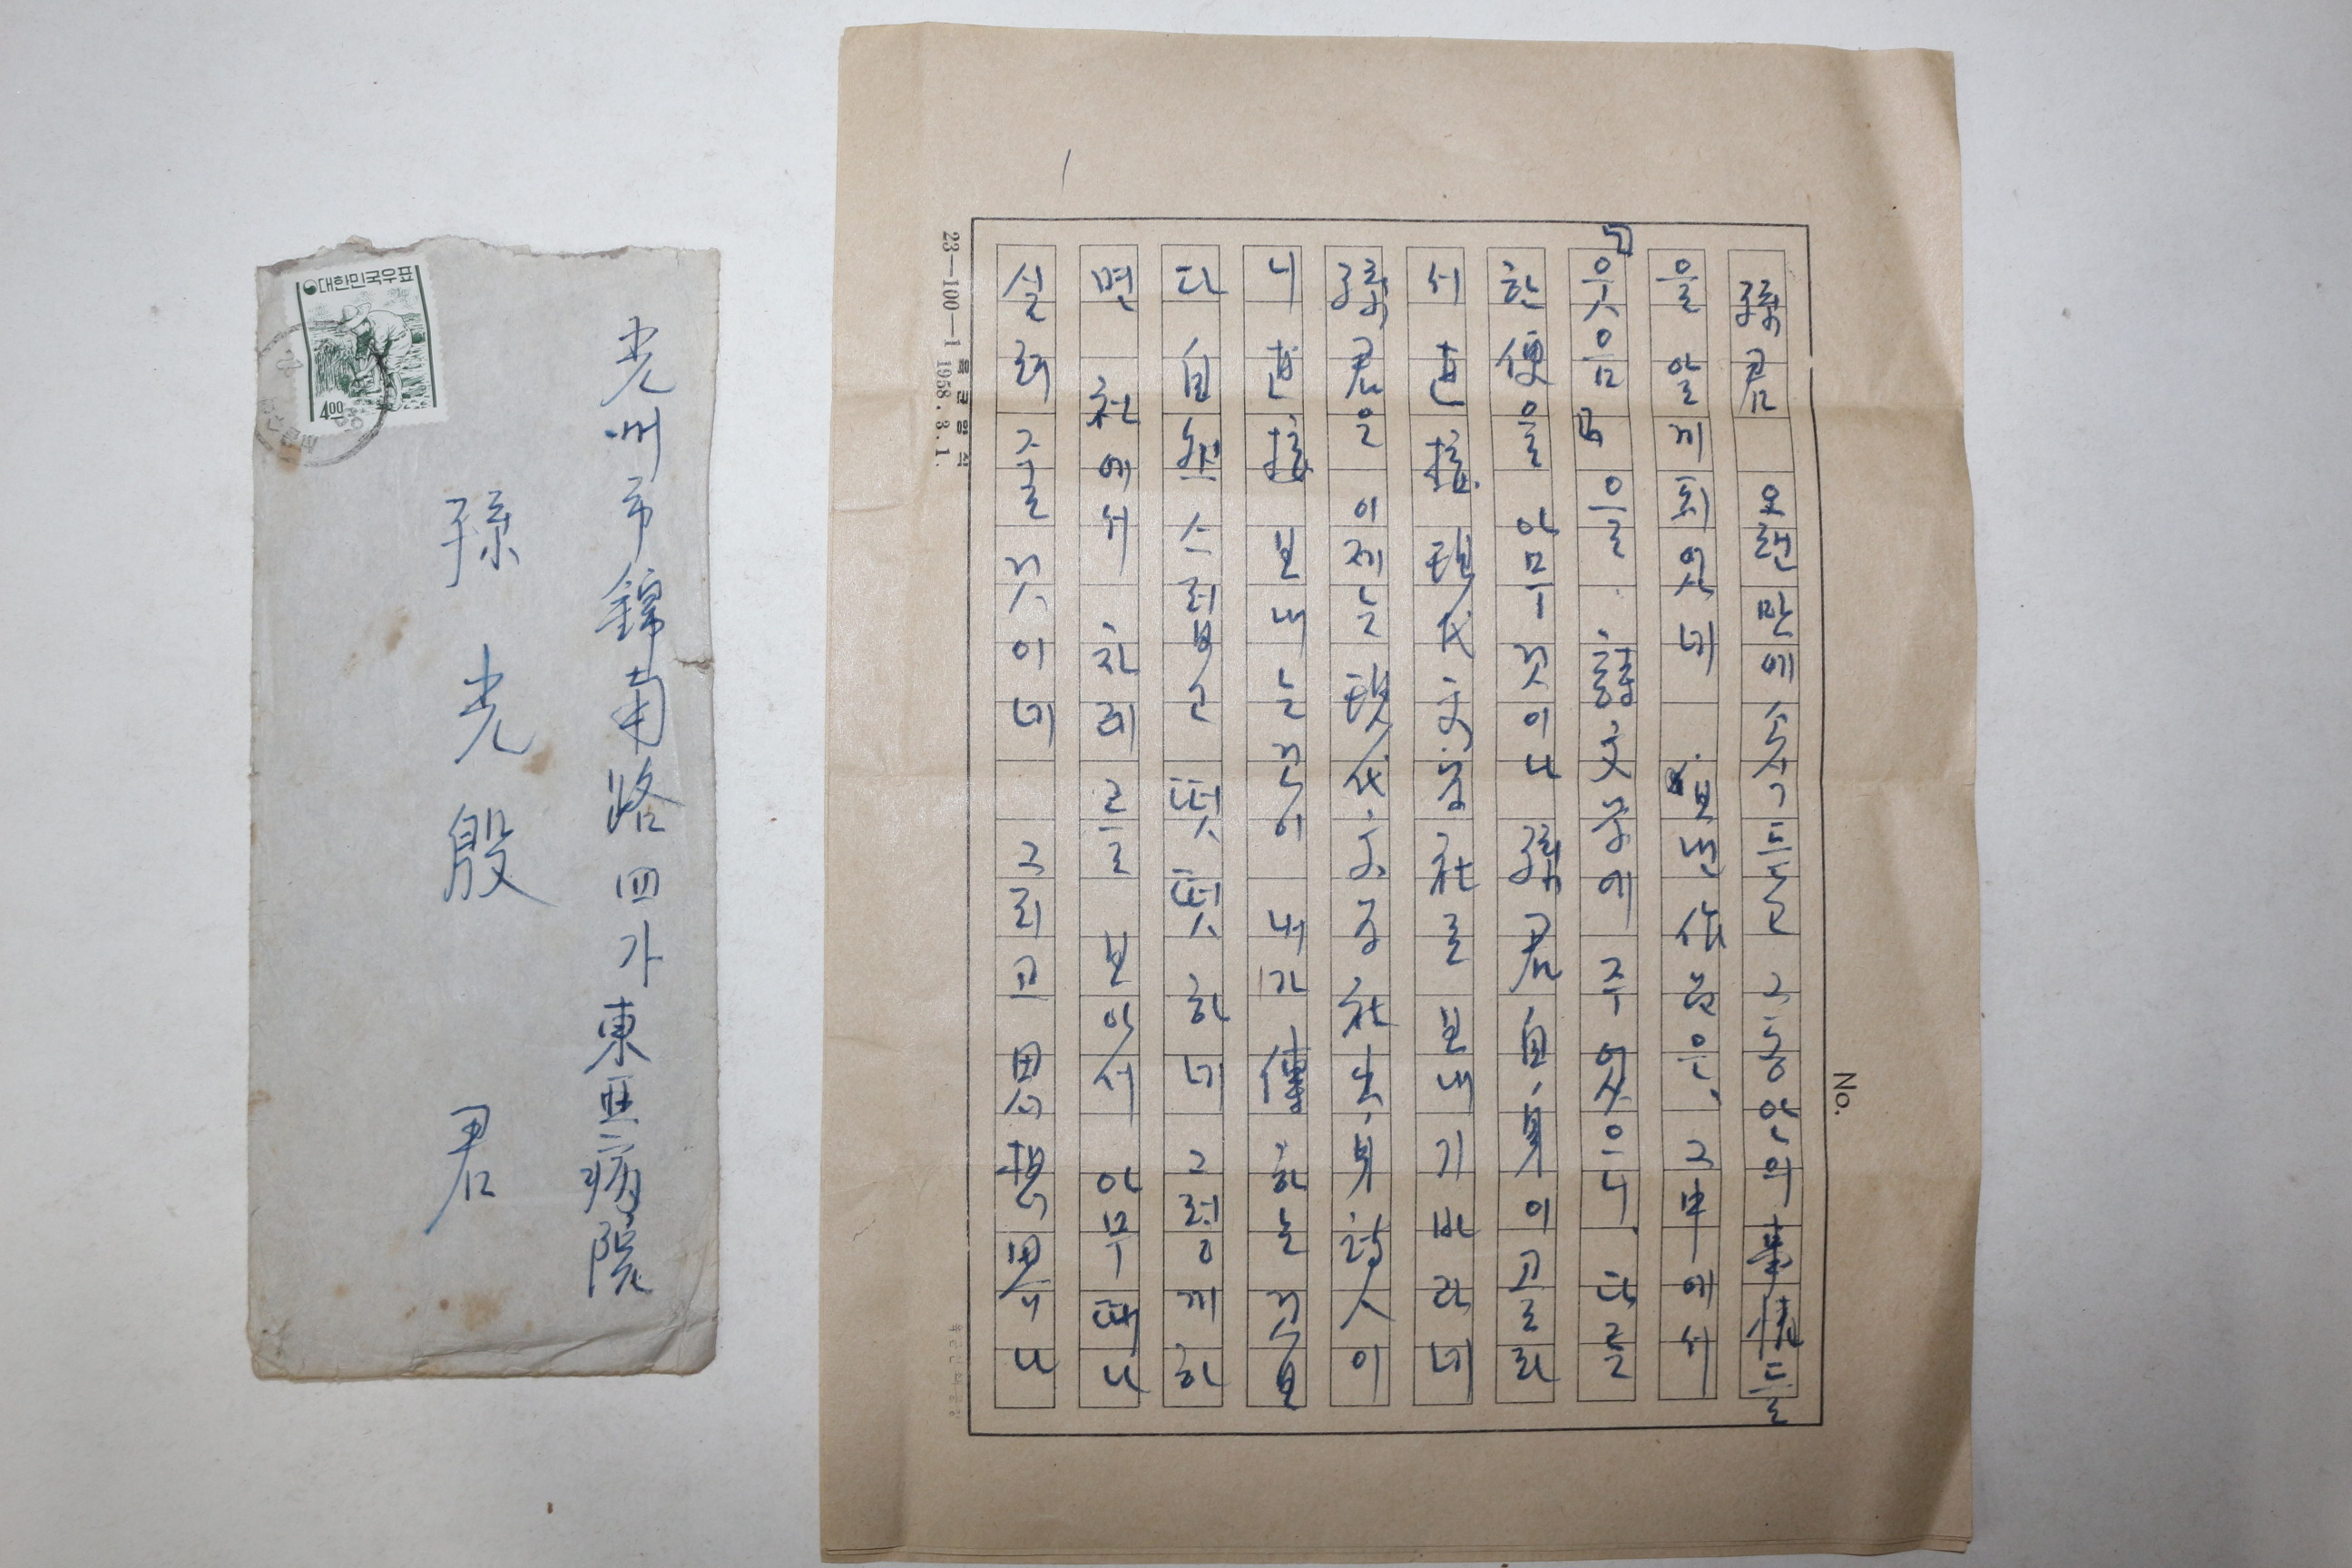 대한민국우표
400
光州市錦南路四가 東亞病院
孫光殷 君
No.
孫君 오랜만에 소식 듣고 그동안의 事情들
을 알게 되었네 보낸 作品은, 그中에서
「웃음」을 詩文學에 주었으니, 다른
한 便을 아무것이나 孫君 自身이 골라
서 直接 現代文學社로 보내기 바라네
孫君은 이제는 現代文學社 出身 詩人이
니 直接 보내는 것이 내가 傳하는 것보
다 自然스러웁고 떳떳하네 그렇게 하
면 차례 보아서 아무때나
실려 줄 것이네 그리고 思想界나
23—100—1 1958.3.1.